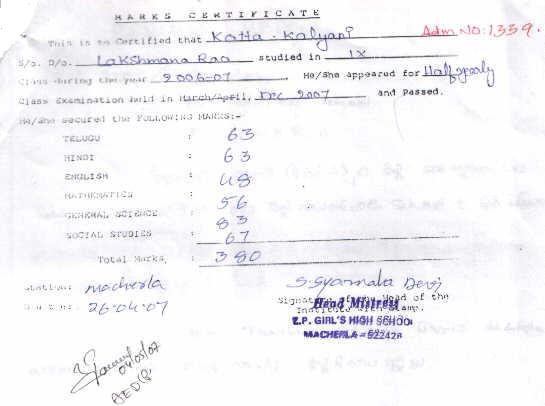 MARKS CERTIFICATE
Adm. NO: 1339.
This is to Certified that Kotta. Kalyani
S/o. D/o. Lakshmana Rao studied in IX
Class during the year 2006-07. He/She appeared for Half yearly
Class Examination held in March/April, Dec 2007 and Passed.
He/She secured the FOLLOWING MARKS:-
TELUGU : 63
HINDI : 63
ENGLISH : 48
MATHEMATICS : 56
GENERAL SCIENCE : 83
SOCIAL STUDIES : 67
Total Marks, : 380
Station: macherla
Date: 26-04-07
S. Syamala Devi
Signature of the Head of the
Institute with Stamp.
Head Mistress
Z.P. GIRL'S HIGH SCHOOL
MACHERLA - 522426
04/05/07